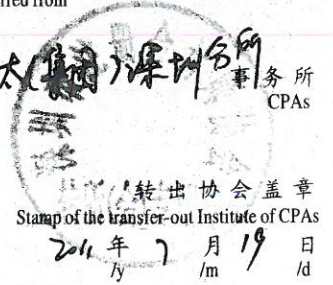 太(集团)深圳分所
事务所
CPAs
转出协会盖章
Stamp of the transfer-out Institute of CPAs
2011 年 7 月 19 日
/y /m /d